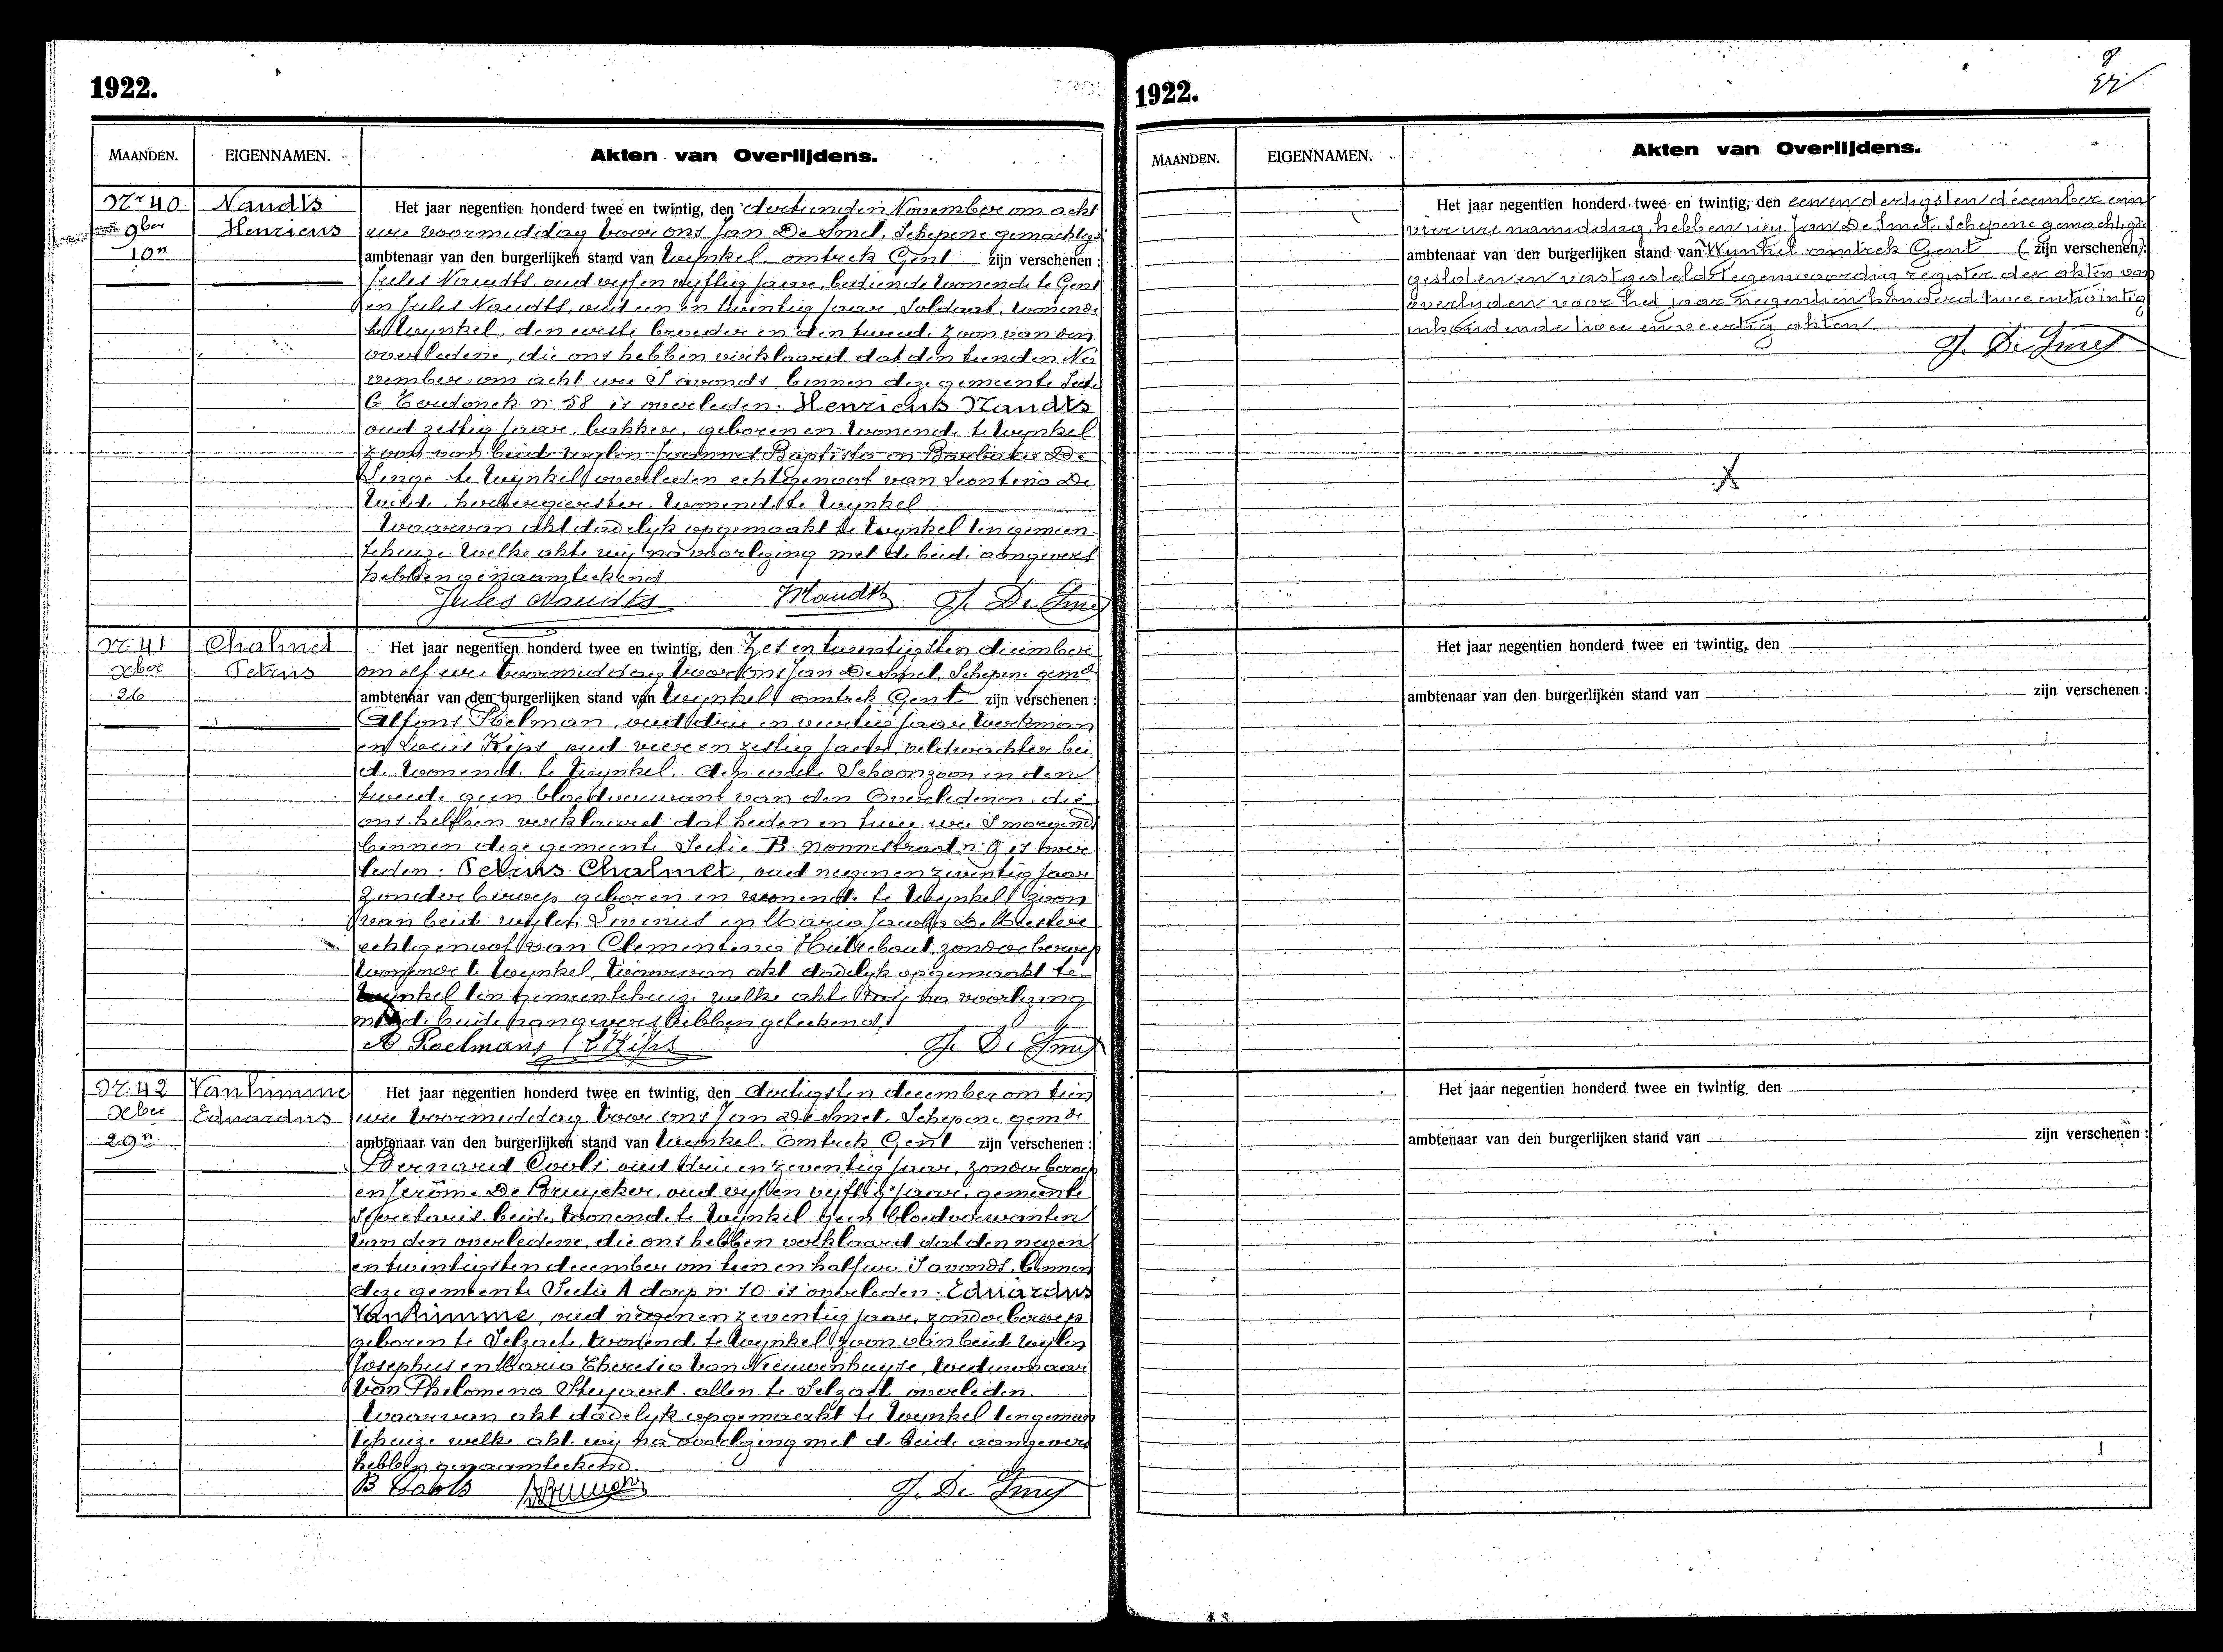 1922.
MAANDEN. EIGENNAMEN. Akten van Overlijdens.
Nr 40 Naudts
9ber Henricus
10n
Het jaar negentien honderd twee en twintig, den dertienden November om acht
ure voormiddag voor ons Jan De Smet, Schepene gemachtigd
ambtenaar van den burgerlijken stand van Wynkel omtrek Gent zijn verschenen :
Jules Naudts, oud vyf en vyftig jaar, bediende wonende te Gent
en Jules Naudts, oud een en twintig jaar, Soldaat, wonende
te Wynkel, den eerste broeder en den tweede zoon van den
overledene, die ons hebben verklaard dat den tienden No
vember om acht ure S'avonds, binnen deze gemeente Sectie
C Terdonck n. 58 is overleden: Henricus Naudts
oud zestig jaar, bakker, geboren en wonende te Wynkel
zoon van beide wylen Joannes Baptista en Barbara De
te Wynkel overleden echtgenoot van Leontina De
Wilde, herbergierster, wonende te Wynkel
Waarvan akt dadelyk opgemaakt te Wynkel ten gemeen
tehuize welke akte wij na voorlezing met de beide aangevers
hebben genaamteekend
Jules Naudts Naudts J. De Smet
Nr. 41 Chalmet
Xber Petrus
26
Het jaar negentien honderd twee en twintig, den Zes en twintigsten december
om elf ure voormiddag voor ons Jan De Smet, Schepene gemd
ambtenaar van den burgerlijken stand van Wynkel omtrek Gent zijn verschenen :
Alfons Poelman, oud drie en veertig jaar Werkman
en Louis Kips, oud vier en zestig jaar veldwachter bei
de wonende te Wynkel, den eerste Schoonzoon en den
tweede geen bloedverwant van den Overledenen, die
ons hebben verklaard dat heden en twee ure S'morgends
binnen deze gemeente Sectie B. Nonnestraat n. 9 is over
leden: Petrus Chalmet, oud negen en zeventig jaar
zonder beroep geboren en wonende te Wynkel zoon
van beide wylen Livinus en Maria Jacoba De Meestere
echtgenoot van Clementina Hullebaut, zonder beroep
wonende te Wynkel, Waarvan akt dadelyk opgemaakt te
Wynkel ten gemeentehuize welke akte wij na voorlezing
met de beide aangevers hebben geteekend
A Poelman L Kips J. De Smet
Nr. 42 Vanhimme
Xber Eduardus
29n.
Het jaar negentien honderd twee en twintig, den dertigsten december om tien
ure voormiddag voor ons Jan De Smet, Schepene gemde
ambtenaar van den burgerlijken stand van Wynkel omtrek Gent zijn verschenen :
Bernard Cools oud drie en zeventig jaar, zonder beroep
en Jerôme De Bruycker, oud vyf en vyftig jaar, gemeente
Secretaris, beide wonende te Wynkel geen bloedverwanten
van den overledene, die ons hebben verklaard dat den negen
en twintigsten december om tien en half ure S'avonds, binnen
deze gemeente Sectie A dorp n. 10 is overleden: Eduardus
Vanhimme, oud negen en zeventig jaar, zonder beroep
geboren te Selzaete, wonende te Wynkel, zoon van beide wylen
Josephus en Maria Theresia Van Nieuwenhuyse, weduwnaar
van Philomena Steyaert, allen te Selzaete overleden.
Waarvan akt dadelyk opgemaakt te Wynkel ten gemeen
tehuize welke akt wij na voorlezing met de beide aangevers
hebben genaamteekend.
B Cools J. De Smet
1922.
8
MAANDEN. EIGENNAMEN. Akten van Overlijdens.
Het jaar negentien honderd twee en twintig, den eenendertigsten december om
vier ure namiddag, hebben wij Jan De Smet, Schepene gemachtigde
ambtenaar van den burgerlijken stand van Wynkel omtrek Gent ( zijn verschenen ):
gesloten en vastgesteld tegenwoordig register der akten van
overlyden voor het jaar negentien honderd twee en twintig
inhoudende twee en veertig akten.
J. De Smet
Het jaar negentien honderd twee en twintig, den
ambtenaar van den burgerlijken stand van zijn verschenen :
Het jaar negentien honderd twee en twintig, den
ambtenaar van den burgerlijken stand van zijn verschenen :